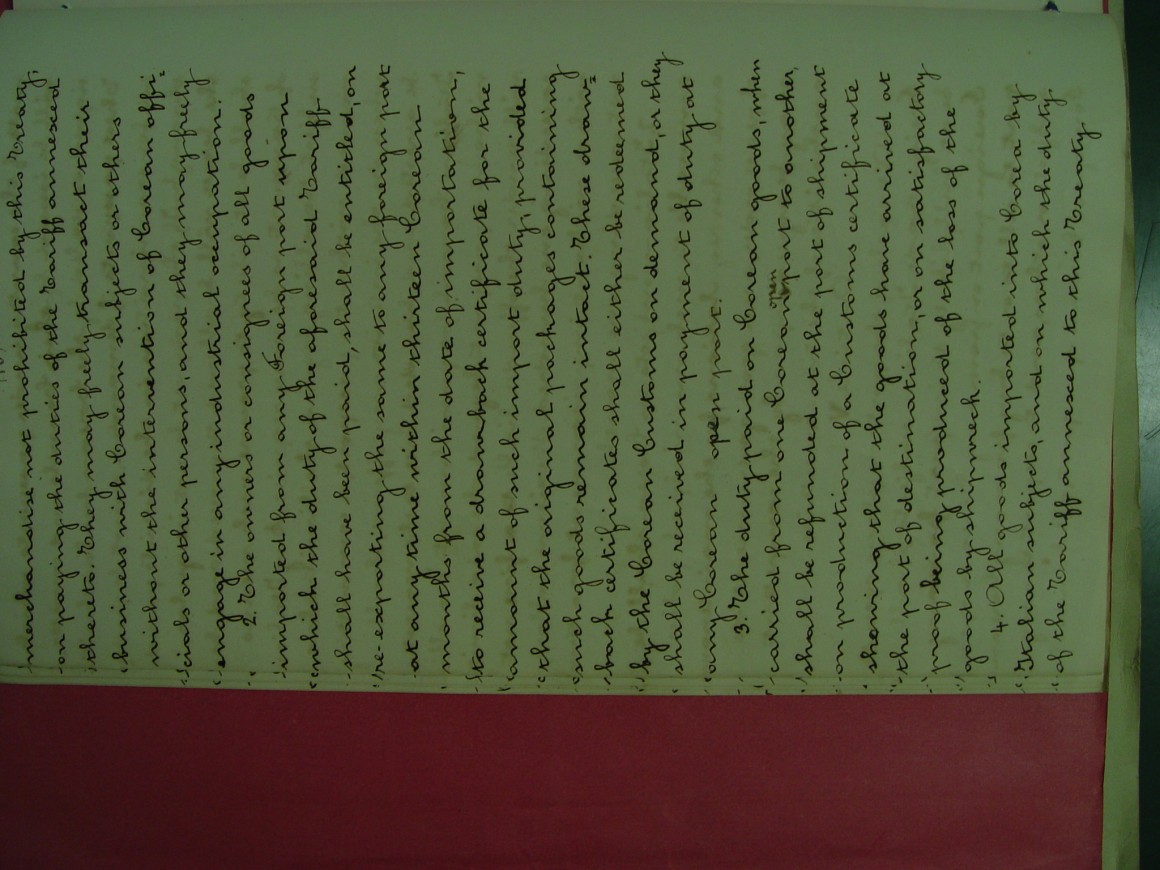 merchandise not prohibited by this Treaty,
on paying the duties of the Tariff annexed
thereto. They may freely transact their
business with Corean subjects or others
without the intervention of Corean offi=
cials or other persons, and they may freely
engage in any industrial occupation.
2. The owners or consignees of all goods
imported from any Foreign port upon
which the duty of the aforesaid Tariff
shall have been paid, shall be entitled, on
re-exporting the same to any foreign port
at any time within thirteen Corean
months from the date of importation,
to receive a drawback certificate for the
amount of such import duty, provided
that the original packages containing
such goods remain intact. These draw=
back certificates shall either be redeemed
by the Corean Customs on demand, or they
shall be received in payment of duty at
any Corean open port.
3. The duty paid on Corean goods, when
open
carried from one Corean port to another,
shall be refunded at the port of shipment
on production of a Customs certificate
showing that the goods have arrived at
the port of destination, or on satisfactory
proof being produced of the loss of the
goods by shipwreck.
4. All goods imported into Corea by
Italian subjects, and on which the duty
of the Tariff annexed to this Treaty